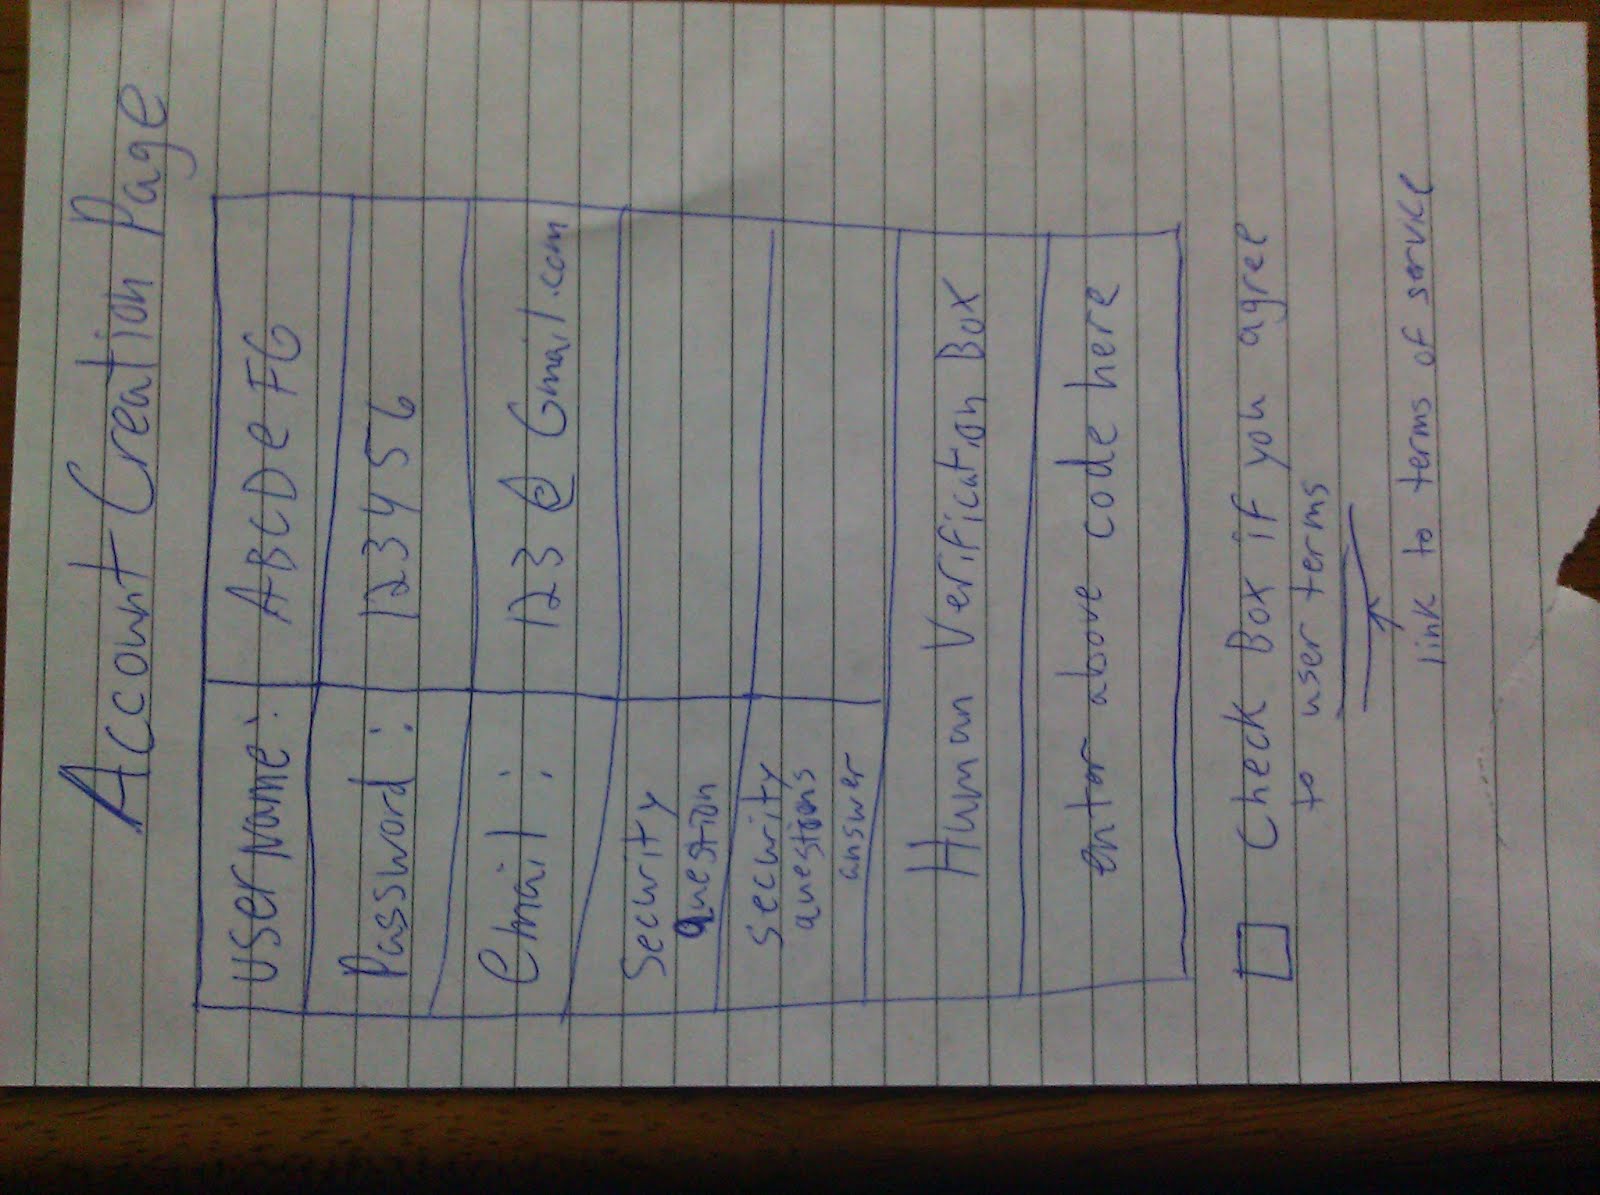 Account Creation Page
USERNAME: ABCDeFG
Password: 123456
Email: 123@Gmail.com
Security
Question
Security
question's
answer
Human Verification Box
enter above code here
Check Box if you agree
to user terms
link to terms of service